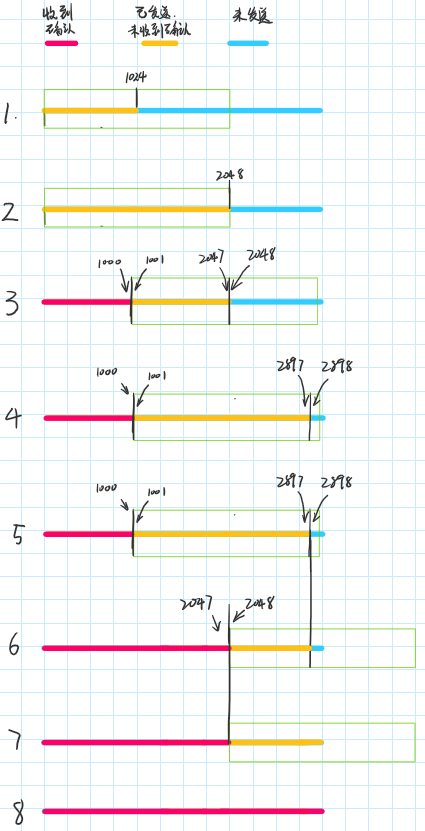 收到 已发送 未发送
已确认 未收到确认
1. 1024
2 2048
1000 1001 2047 2048
3
1000 1001 2897 2898
4
1000 1001 2897 2898
5
2047 2048
6
7
8